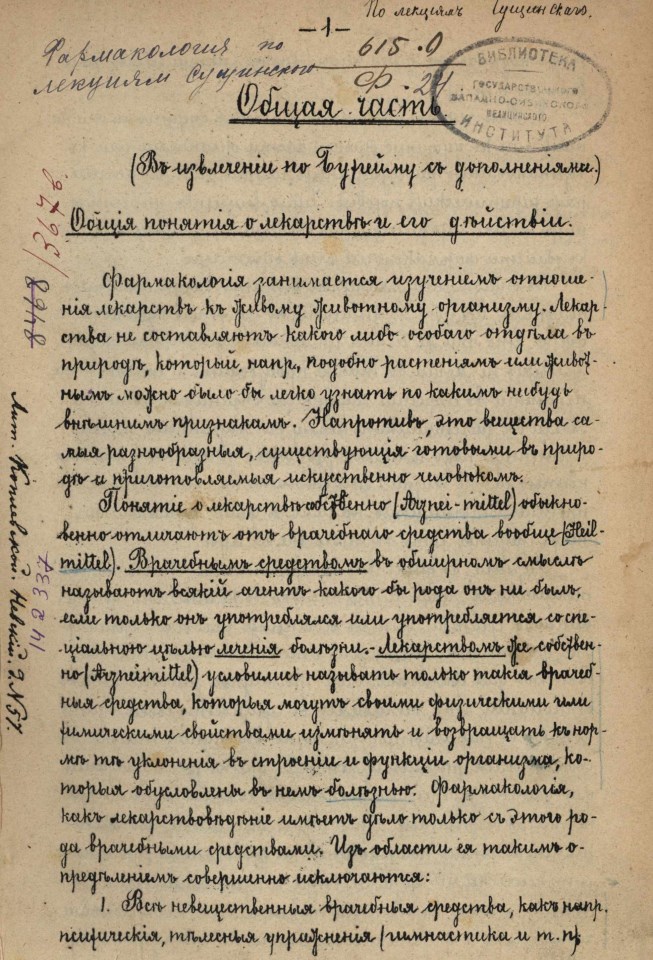 По лекціямъ Сущинскаго.
— 1 —
Фармакология по
лекциям Сущинского
615.0
Ф-24
БИБЛИОТЕКА
ГОСУДАРСТВЕННОГО
МЕДИЦИНСКОГО
ИНСТИТУТА
Общая часть.
(Въ извлеченіи по Бухгейму съ дополненіями.)
Общія понятія о лекарствѣ и его дѣйствіи.
Фармакологія занимается изученіемъ отноше-
нія лекарствъ къ живому животному организму. Лекар-
ства не составляютъ какого либо особаго отдѣла въ
природѣ, который, напр., подобно растеніямъ или живот-
нымъ можно было бы легко узнать по какимъ нибудь
внѣшнимъ признакамъ. Напротивъ, это вещества са-
мыя разнообразныя, существующія готовыми въ приро-
дѣ и приготовляемыя искусственно человѣкомъ.
Понятіе о лекарствѣ собственно (Arznei-mittel) обыкно-
венно отличаютъ отъ врачебнаго средства вообще (Heil-
mittel). Врачебнымъ средствомъ въ обширномъ смыслѣ
называютъ всякій агентъ какого бы рода онъ ни былъ,
если только онъ употреблялся или употребляется со спе-
ціальною цѣлью леченія болѣзни. - Лекарствомъ же собствен-
но (Arzneimittel) условились называть только такія врачеб-
ныя средства, которыя могутъ своими физическими или
химическими свойствами измѣнять и возвращать къ нор-
мѣ тѣ уклоненія въ строеніи и функціи организма, ко-
торыя обусловлены въ немъ болѣзнью. Фармакологія,
какъ лекарствовѣдѣніе имѣетъ дѣло только съ этого ро-
да врачебными средствами. Изъ области ея такимъ о-
предѣленіемъ совершенно исключаются:
1. Всѣ невещественныя врачебныя средства, какъ напр.
психическія, тѣлесныя упражненія (гимнастика и т. п)
8468
14233
Лит. Невскій.